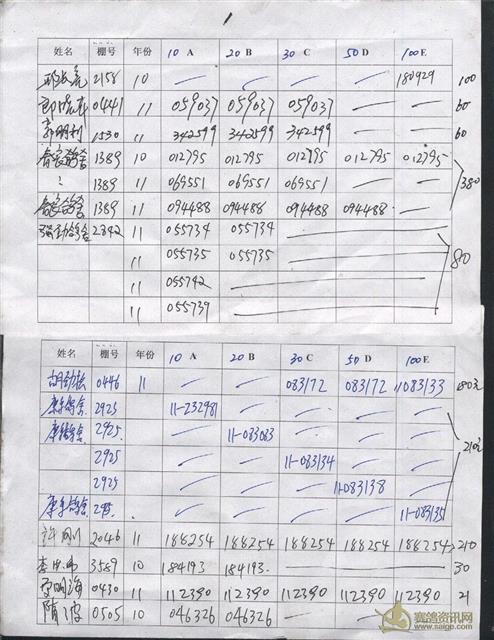 姓名 棚号 年份 10 A 20 B 30 C 50 D 100 E
2158 10 — — — — 180929 100
0441 11 059037 059037 059037 — — 60
1530 11 342599 342599 342599 — — 60
1389 10 012795 012795 012795 012795 012795
1389 11 069551 069551 069551 — — 380
1389 11 094488 094488 094488 094488 —
2842 11 055734 055734
11 055735 055735 80
11 055742
11 055739
姓名 棚号 年份 10 A 20 B 30 C 50 D 100 E
胡劲松 0446 11 — — 083172 083172 11083133
2925 11-232981 — — — —
2925 — 11-083083 — — —
2925 — — 11-083134 — — 210元
2925 — — — 11-083138 —
— — — — 11-083135
许刚 2046 11 188254 188254 188254 188254 188254 210
3589 10 184193 184193 — — — 30
0430 11 112390 112390 112390 112390 112390 21
隋波 0505 10 046326 046326
赛鸽资讯网
www.saigp.com